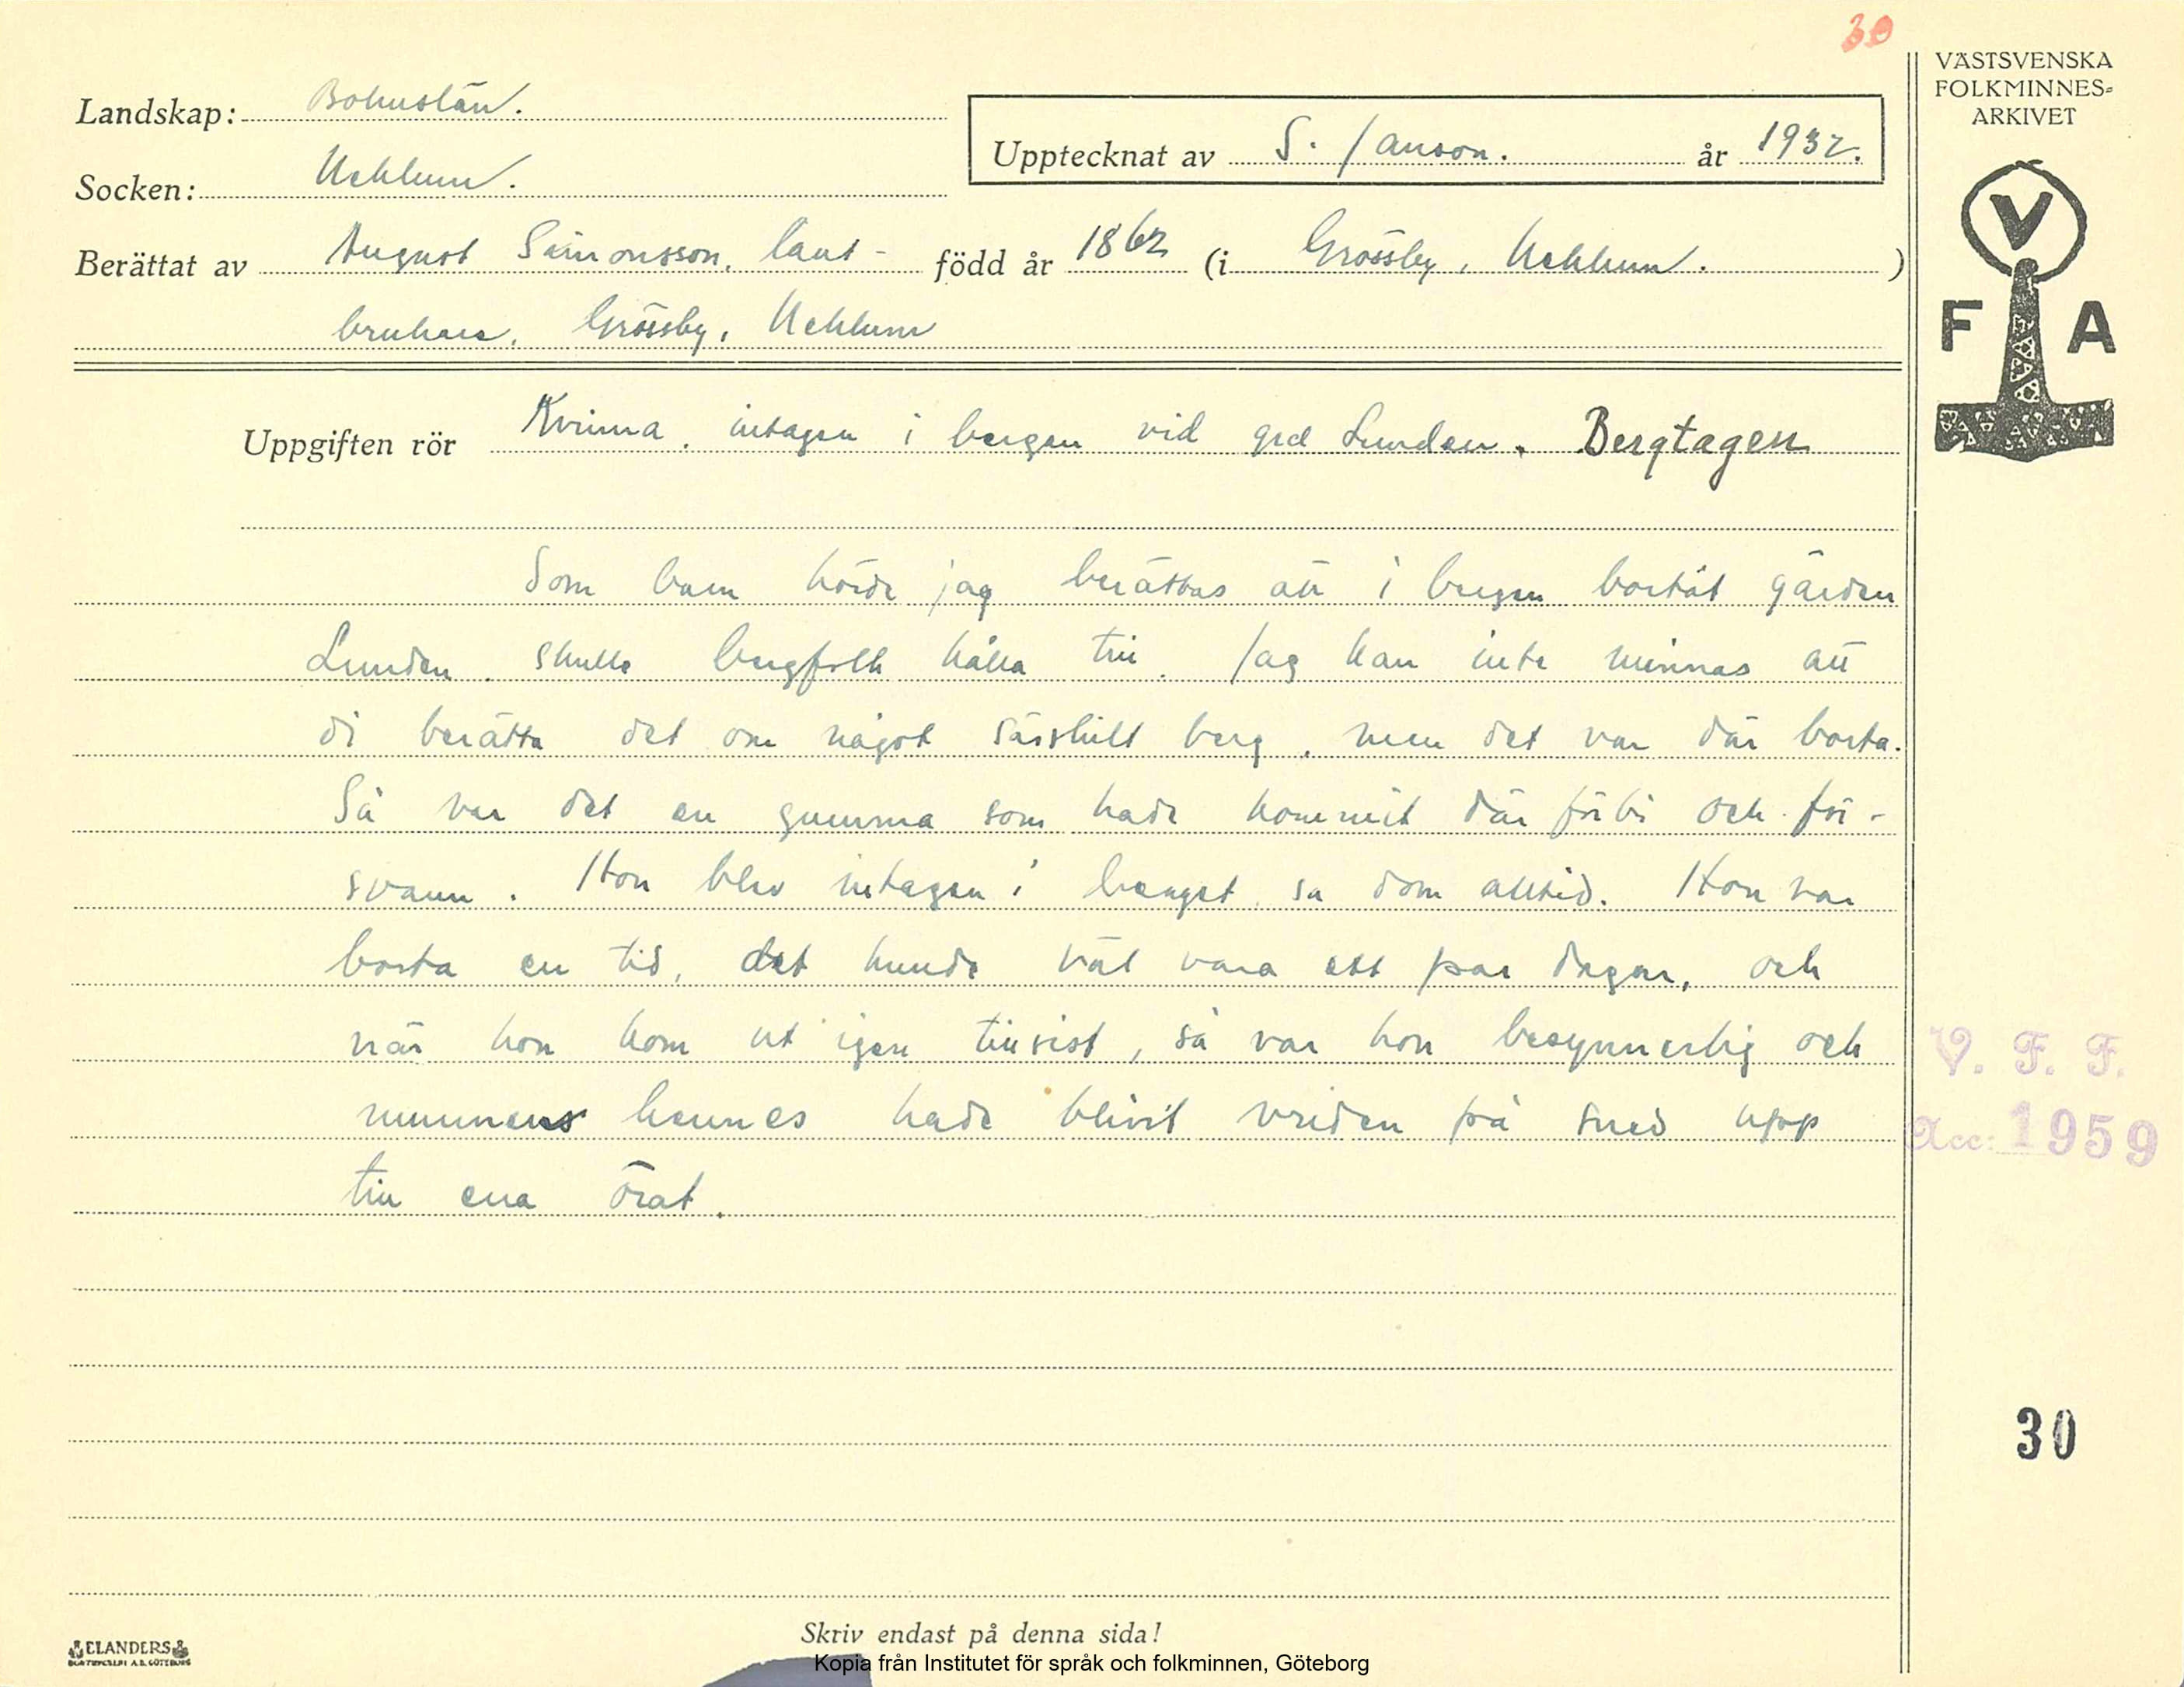 30
VÄSTSVENSKA
FOLKMINNES-
ARKIVET
Landskap: Bohuslän.
Upptecknat av S. Janson. år 1932.
Socken: Ucklum.
Berättat av August Simonsson, lant- född år 1862 (i Grössby, Ucklum. )
brukare, Grössby, Ucklum
V
F A
Uppgiften rör Kvinna, intagen i bergen vid grd Lunden. Bergtagen
Som barn hörde jag berättas att i bergen bortåt gården
Lunden, skulle bergfolk hålla till. Jag kan inte minnas att
di berätta det om något särskilt berg, men det var där borta.
Så var det en gumma som hade kommit där förbi och för-
svann. Hon blev intagen i berget, sa dom alltid. Hon var
borta en tid, det kunde väl vara ett par dagar, och
när hon kom ut igen till sist, så var hon besynnerlig och
munnens hennes hade blivit vriden på sned upp
till ena örat.
V. F. F.
Acc: 1959
30
Skriv endast på denna sida!
ELANDERS
Kopia från Institutet för språk och folkminnen, Göteborg